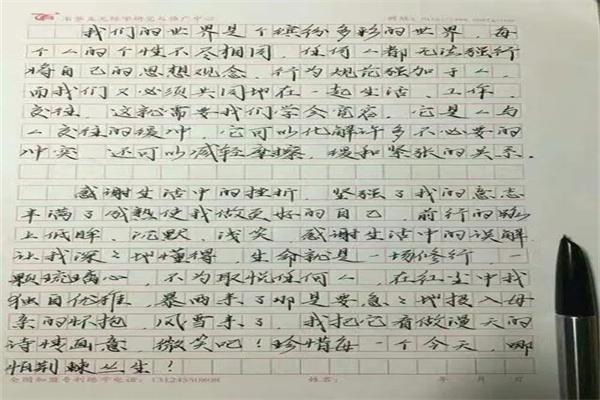 我们的世界是个缤纷多彩的世界,每
个人的个性不尽相同,任何人都无法强行
将自己的思想观念,行为规范强加于人,
而我们又必须共同地在一起生活、工作、
交往,这就需要我们学会宽容,它是人与
人交往的缓冲,它可以化解许多不必要的
冲突 还可以减轻摩擦,缓和紧张的关系.
感谢生活中的挫折,坚强了我的意志
丰满了成熟使我做更好的自己,前行的路
上低眸、沉默,浅笑 感谢生活中的误解
让我深深地懂得,生命就是一场修行,一
颗琉璃心,不为取悦任何人,在红尘中我
独自优雅,暴雨来了那是要急急地投入母
亲的怀抱,风雪来了,我把它看做漫天的
诗情画意,微笑吧!珍惜每一个今天,哪
怕荆棘丛生!
姓名: 年 月 日